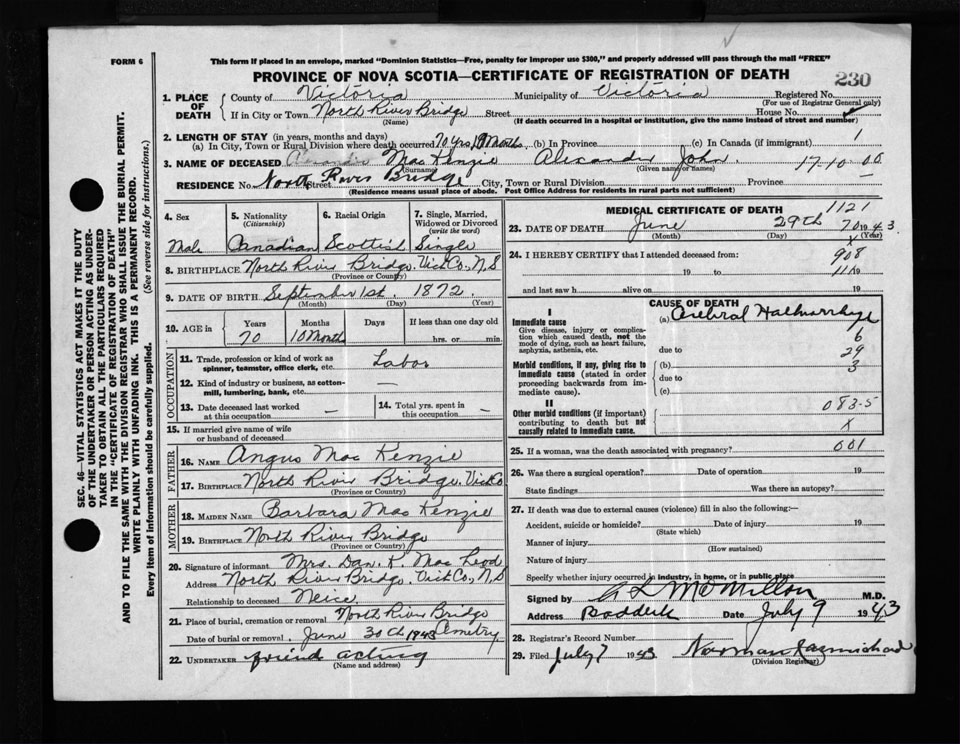 FORM 6
This form if placed in an envelope, marked "Dominion Statistics—Free, penalty for improper use $300," and properly addressed will pass through the mail "FREE"
PROVINCE OF NOVA SCOTIA—CERTIFICATE OF REGISTRATION OF DEATH
230
1. PLACE OF DEATH
County of Victoria Municipality of Victoria Registered No.
(For use of Registrar General only)
If in City or Town North River Bridge Street House No.
(Name) (If death occurred in a hospital or institution, give the name instead of street and number)
2. LENGTH OF STAY (in years, months and days)
(a) In City, Town or Rural Division where death occurred 70 yrs, 10 Months (b) In Province (c) In Canada (if immigrant) 1
3. NAME OF DECEASED Mac Kenzie Alexander John. 17-10-00
(Surname) (Given name or names)
RESIDENCE No. Street North River Bridge City, Town or Rural Division Province
(Residence means usual place of abode. Post Office Address for residents in rural parts not sufficient)
4. Sex
Male
5. Nationality (Citizenship)
Canadian
6. Racial Origin
Scottish
7. Single, Married, Widowed or Divorced (write the word)
Single
8. BIRTHPLACE North River Bridge, Vict Co., N,S
(Province or Country)
9. DATE OF BIRTH September 1st. 1872.
(Month) (Day) (Year)
10. AGE in
Years Months Days If less than one day old
70 10 Month hrs. or min.
OCCUPATION
11. Trade, profession or kind of work as spinner, teamster, office clerk, etc. Labor
12. Kind of industry or business, as cotton-mill, lumbering, bank, etc. —
13. Date deceased last worked at this occupation —
14. Total yrs. spent in this occupation —
15. If married give name of wife or husband of deceased
FATHER
16. NAME Angus Mac Kenzie
17. BIRTHPLACE North River Bridge, Vic Co
(Province or Country)
MOTHER
18. MAIDEN NAME Barbara Mac Kenzie
19. BIRTHPLACE North River Bridge
(Province or Country)
20. Signature of informant Mrs. Dan. K. Mac Leod
Address North River Bridge, Vict Co, N,S
Relationship to deceased Neice
21. Place of burial, cremation or removal North River Bridge
Cemetry
Date of burial or removal June 30th 1943
22. UNDERTAKER friend acting
(Name and address)
MEDICAL CERTIFICATE OF DEATH 1121
23. DATE OF DEATH June 29th 1943
70
(Month) (Day) (Year)
24. I HEREBY CERTIFY that I attended deceased from: X
908
19 to 19
and last saw h alive on 19
CAUSE OF DEATH
I
Immediate cause
Give disease, injury or complication which caused death, not the mode of dying, such as heart failure, asphyxia, asthenia, etc.
(a) Cerebral
6
due to 29
Morbid conditions, if any, giving rise to immediate cause (stated in order proceeding backwards from immediate cause).
(b) 3
due to
(c)
II
Other morbid conditions (if important) contributing to death but not causally related to immediate cause.
083-5
X
25. If a woman, was the death associated with pregnancy? 001
26. Was there a surgical operation? Date of operation 19
State findings Was there an autopsy?
27. If death was due to external causes (violence) fill in also the following:—
Accident, suicide or homicide? Date of injury 19
(State which)
Manner of injury
(How sustained)
Nature of injury
Specify whether injury occurred in industry, in home, or in public place
Signed by McMillan M.D.
Address Baddeck Date July 9 1943
28. Registrar's Record Number
29. Filed July 7 1943 Norman
(Division Registrar)
SEC. 46—VITAL STATISTICS ACT MAKES IT THE DUTY
OF THE UNDERTAKER OR PERSON ACTING AS UNDER-
TAKER TO OBTAIN ALL THE PARTICULARS REQUIRED
IN THE "CERTIFICATE OF REGISTRATION OF DEATH"
AND TO FILE THE SAME WITH THE DIVISION REGISTRAR WHO SHALL ISSUE THE BURIAL PERMIT.
WRITE PLAINLY WITH UNFADING INK. THIS IS A PERMANENT RECORD.
Every item of information should be carefully supplied. (See reverse side for instructions.)